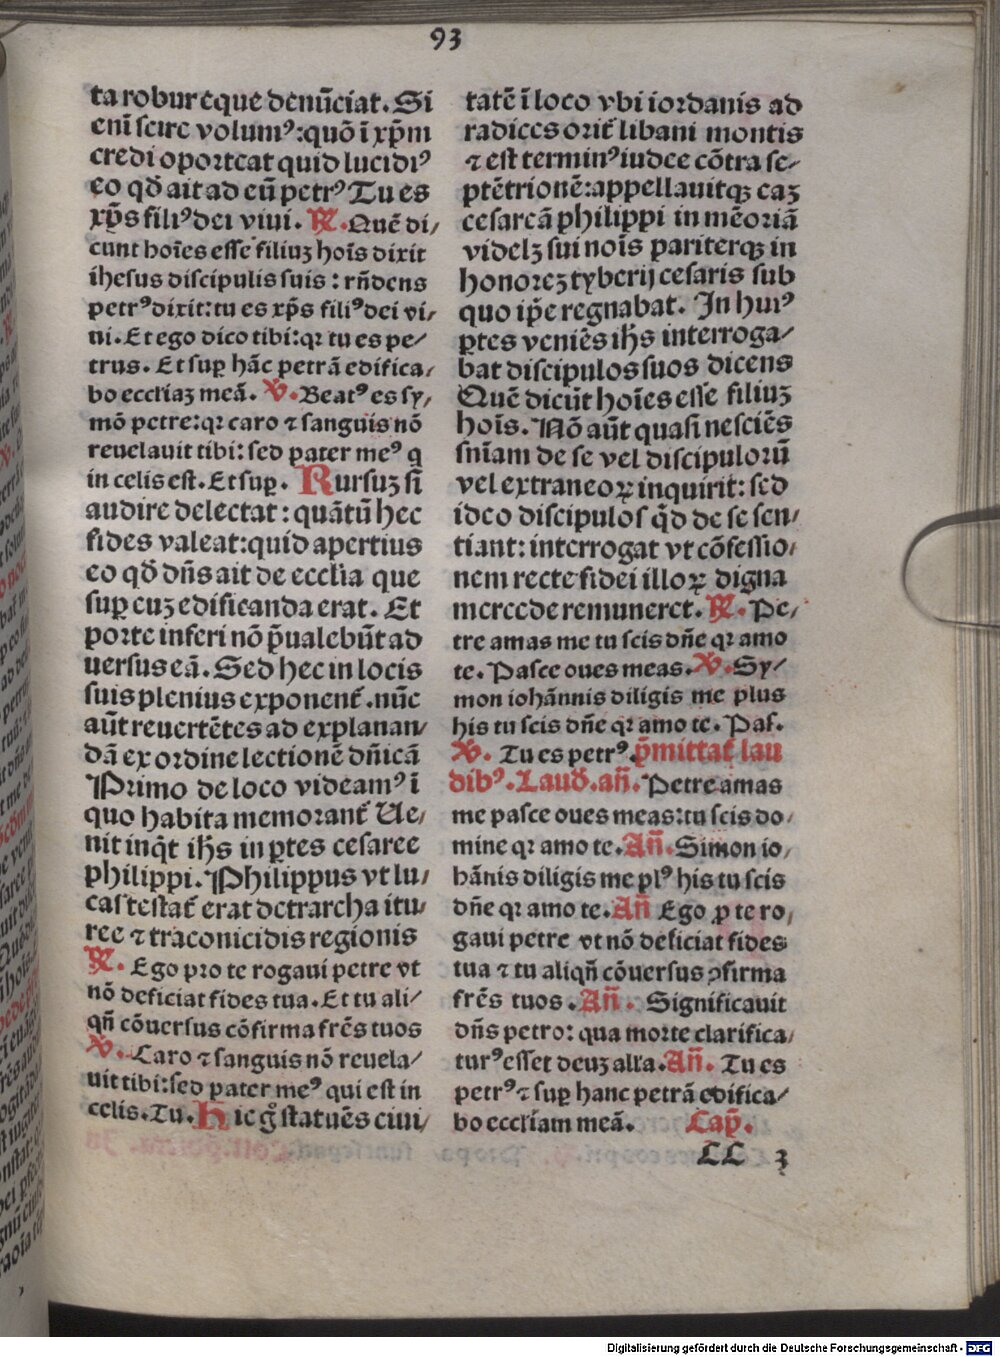 93
ta robur eque denūciat. Si
eni᷈ scire volumꝰ: quō ī xp̄m
credi oporteat quid lucidiꝰ
eo qd̄ ait ad eū petrꝰ Tu es
xp̄s filiꝰ dei viui. ℟. Quē di/
cunt hoīes esse filiuꝫ hoīs dixit
ihesus discipulis suis: rn̄dens
petrꝰ dixit: tu es xp̄s filiꝰ dei vi/
ni. Et ego dico tibi: qꝛ tu es pe/
trus. Et suꝑ hāc petrā edifica/
bo eccliaꝫ meā. ℣. Beatꝰ es sy/
mō petre: qꝛ caro ⁊ sanguis nō
reuelauit tibi: sed pater meꝰ q
in celis est. Et suꝑ. Rursuꝫ si᷈
audire delectat: quātū hec
fides valeat: quid apertius
eo qd̄ dn̄s ait de ecclīa que
suꝑ euꝫ edificanda erat. Et
porte inferi nō p̄ualebūt ad
uersus eā. Sed hec in locis
suis plenius exponent᷈. nūc
aūt reuertētes ad explanan/
dā ex ordine lectionē dn̄icā
Primo de loco videamꝰ ī
quo habita memorant᷈ Ue/
nit inq̄t ih̄s in ꝑtes cesaree
philippi. Philippus vt lu/
cas testat᷈ erat detrarcha itu/
ree ⁊ traconicidis regionis
℟. Ego pro te rogaui petre vt
nō deficiat fides tua. Et tu ali/
qn̄ cōuersus cōfirma frēs tuos
℣. Caro ⁊ sanguis nō reuela/
uit tibi: sed pater meꝰ qui est in
celis. Tu. Hic g̊ statuēs ciui/
tatē ī loco vbi iordanis ad
radices orit᷈ libani montis
⁊ est terminꝰ iudee cōtra se/
ptētrionē: appellauitqꝫ eaꝫ
cesareā philippi in mēoriā
videlꝫ sui nois᷈ pariterqꝫ in
honoreꝫ tyberij cesaris sub
quo ip̄e regnabat. In huiꝰ
ꝑtes veniēs ih̄s interroga/
bat discipulos suos dicens
Quē dicūt hoīes esse filiuꝫ
hoīs. Nō aūt quasi nesciēs
sn̄iam de se vel discipulorū
vel extraneoꝝ inquirit: sed
ideo discipulos qd̄ de se sen/
tiant: interrogat vt cōfessio/
nem recte fidei illoꝝ digna
mercede remuneret. ℟. Pe/
tre amas me tu scis dn̄e qꝛ amo
te. Pasce oues meas. ℣. Sy/
mon iohānnis diligis me plus
his tu scis dn̄e qꝛ amo te. Pas.
℣. Tu es petrꝰ. p̄mittat᷈ lau
dibꝰ. Laud̄. an̄. Petre amas
me pasce oues meas: tu scis do/
mine qꝛ amo te. An̄. Simon io/
hānis diligis me plꝰ his tu scis
dn̄e qꝛ amo te. An̄ Ego ꝓ te ro/
gaui petre vt nō deficiat fides
tua ⁊ tu aliqn̄ cōuersus ꝯfirma
frēs tuos. An̄. Significauit
dn̄s petro: qua morte clarifica/
turꝰ esset deuꝫ alla. An̄. Tu es
petrꝰ ⁊ suꝑ hanc petrā edifica/
bo eccl᷈iam meā. Cap̄.
LL 3
Digitalisierung gefördert durch die Deutsche Forschungsgemeinschaft - DFG